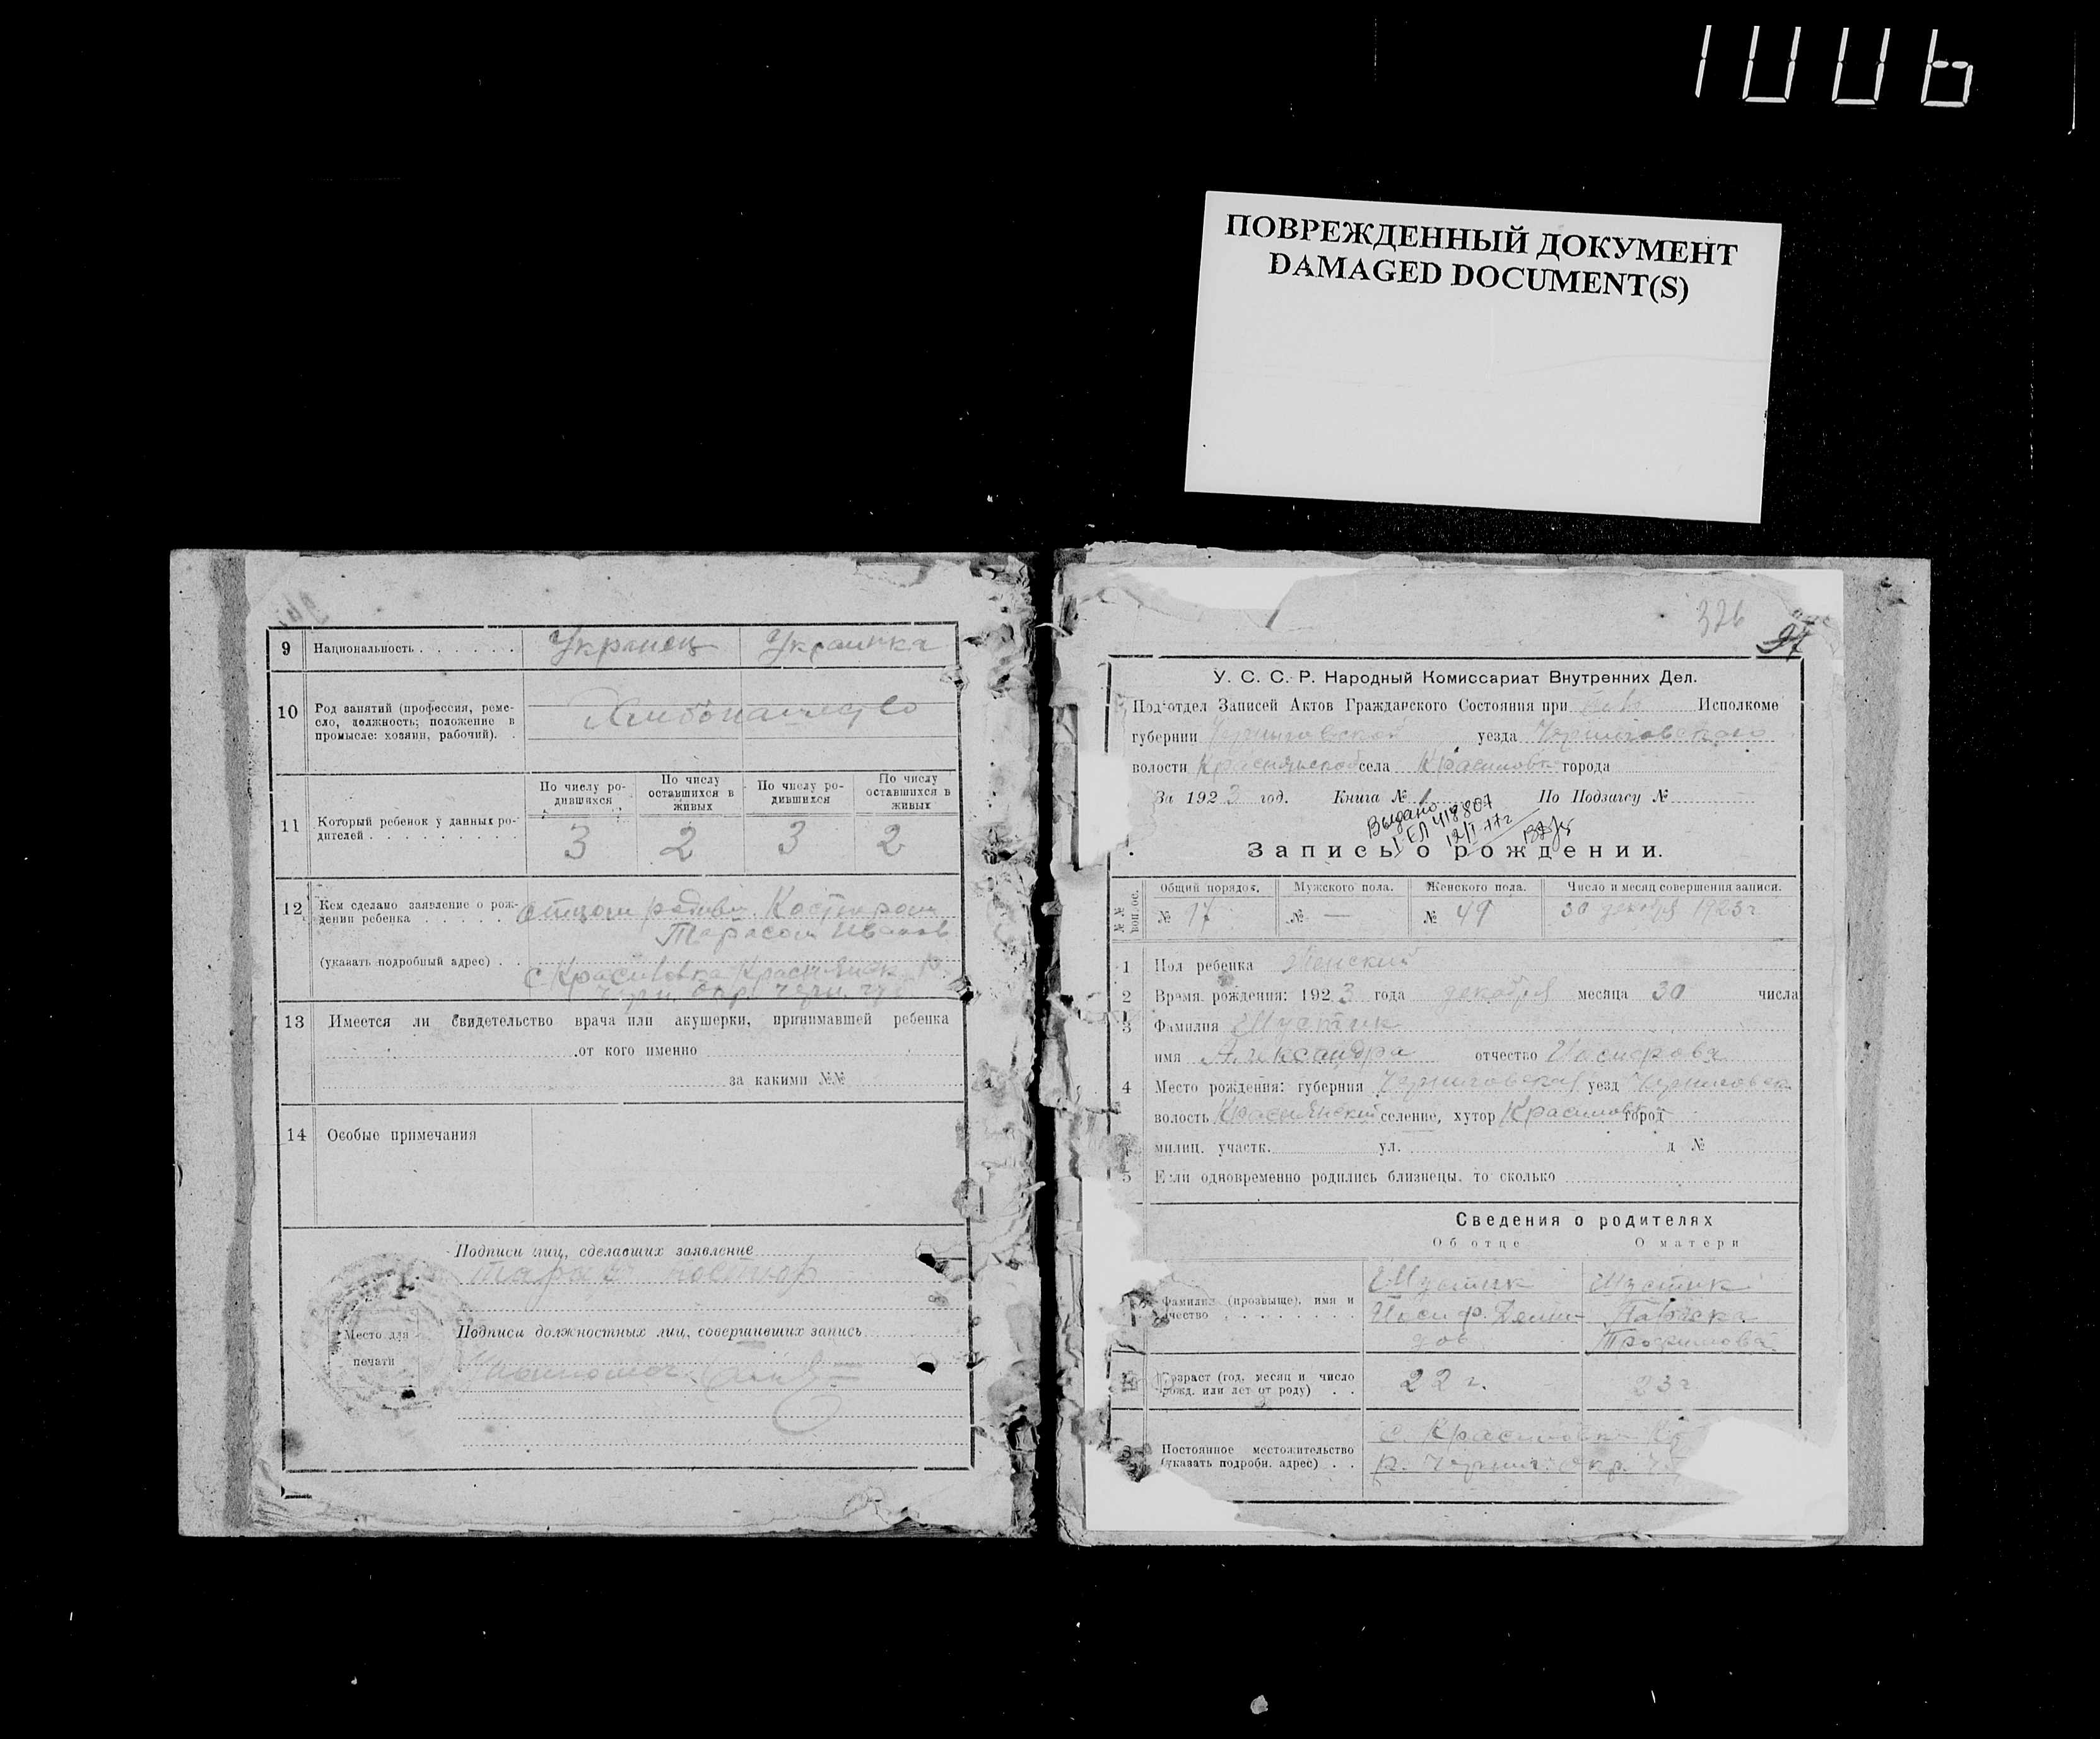 1006
ПОВРЕЖДЕННЫЙ ДОКУМЕНТ
DAMAGED DOCUMENT(S)
9 Национальность Украинец Украинка
10 Род занятий (профессия, реме-
сло, должность; положение в
промысле: хозяин, рабочий).
Хлебопашество
По числу ро-
дившихся
По числу
оставшихся в
живых
По числу ро-
дившихся
По числу
оставшихся в
живых
11 Который ребенок у данных ро-
дителей
3 2 3 2
12 Кем сделано заявление о рож-
дении ребенка
отцом
Тарасом Иванов
(указать подробный адрес)
с Красиловка
13 Имеется ли свидетельство врача или акушерки, принимавшей ребенка
от кого именно
за какими №№
14 Особые примечания
Подписи лиц, сделавших заявление
Тарас
Место для
печати
Подписи должностных лиц, совершивших запись
326
97
У. С. С. Р. Народный Комиссариат Внутренних Дел.
Под'отдел Записей Актов Гражданского Состояния при Исполкоме
губернии Черниговской уезда Черниговского
волости села Красиловка города
За 1923 год. Книга № 1 По Подзагсу №
Выдано
Запись о рождении.
№№ воп.ос.
Общий порядок. Мужского пола. Женского пола. Число и месяц совершения записи.
№ 97 № — № 49 30 декабря 1923 г
1 Пол ребенка Женский
2 Время рождения: 1923 года декабря месяца 30 числа
3 Фамилия Шустик
имя Александра отчество Иосифовна
4 Место рождения: губерния Черниговская уезд Черниговск
волость селение, хутор Красиловка город
милиц. участк. ул. д №
5 Если одновременно родились близнецы, то сколько
Сведения о родителях
Об отце О матери
Фамилия (прозвище), имя и
отчество
Шустик Шустик
Иосиф Деми-
дов Трофимова
Возраст (год, месяц и число
рожд. или лет от роду)
22 г. 23 г
8 Постоянное местожительство
(указать подробн. адрес)
с. Красиловка
р. Черниг. Окр.